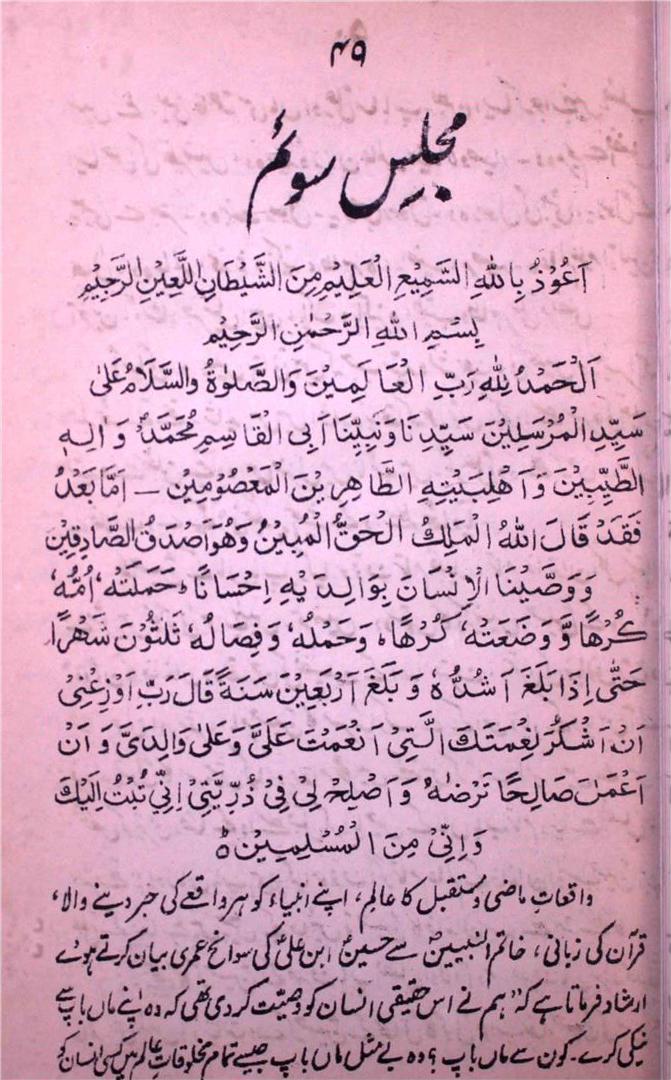 ۴۹
مجلسِ سوئم
اَعُوْذُ بِاللهِ السَّمِيْعِ الْعَلِيْمِ مِنَ الشَّيْطَانِ اللَّعِيْنِ الرَّجِيْمِ
بِسْمِ اللهِ الرَّحْمٰنِ الرَّحِيْمِ
اَلْحَمْدُ لِلّٰهِ رَبِّ الْعَالَمِيْنَ وَالصَّلٰوةُ وَالسَّلَامُ عَلٰى
سَيِّدِ الْمُرْسَلِيْنَ سَيِّدِنَا وَنَبِيِّنَا اَبِى الْقَاسِمِ مُحَمَّدٍ وَاٰلِهٖ
الطَّيِّبِيْنَ وَاَهْلِبَيْتِهِ الطَّاهِرِيْنَ الْمَعْصُوْمِيْنَ ـ اَمَّا بَعْدُ
فَقَدْ قَالَ اللهُ الْمَلِكُ الْحَقُّ الْمُبِيْنُ وَهُوَ اَصْدَقُ الصَّادِقِيْنَ
وَوَصَّيْنَا الْاِنْسَانَ بِوَالِدَيْهِ اِحْسَانًا ؕ حَمَلَتْهُ اُمُّهٗ
كُرْهًا وَّ وَضَعَتْهُ كُرْهًا ؕ وَحَمْلُهٗ وَفِصَالُهٗ ثَلٰثُوْنَ شَهْرًا
حَتّٰى اِذَا بَلَغَ اَشُدَّهٗ وَبَلَغَ اَرْبَعِيْنَ سَنَةً قَالَ رَبِّ اَوْزِعْنِىْ
اَنْ اَشْكُرَ نِعْمَتَكَ الَّتِىْ اَنْعَمْتَ عَلَىَّ وَعَلٰى وَالِدَىَّ وَاَنْ
اَعْمَلَ صَالِحًا تَرْضٰهُ وَاَصْلِحْ لِىْ فِىْ ذُرِّيَّتِىْ اِنِّىْ تُبْتُ اِلَيْكَ
وَاِنِّىْ مِنَ الْمُسْلِمِيْنَ ۵
واقعاتِ ماضی و مستقبل کا عالِم، اپنے انبیاء کو ہر واقعے کی خبر دینے والا،
قرآن کی زبانی، خاتم النبیینؐ سے حسینؑ ابن علیؑ کی سوانح عمری بیان کرتے ہوئے
ارشاد فرماتا ہے کہ "ہم نے اس حقیقی انسان کو وصیّت کر دی تھی کہ وہ اپنے ماں باپ سے
نیکی کرے۔ کون سے ماں باپ؟ وہ بے مثل ماں باپ جیسے تمام مخلوقاتِ عالم میں کسی انسان کو